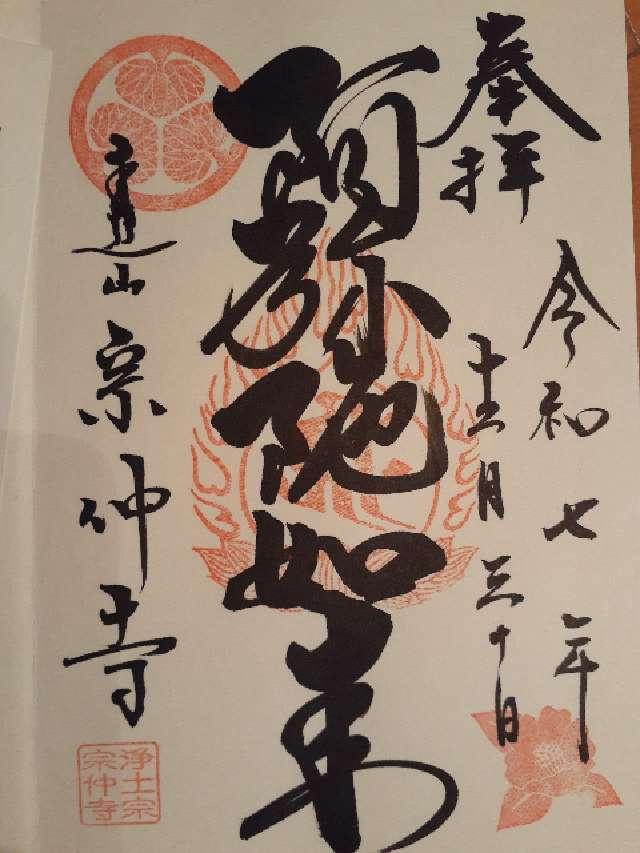 奉拝
令和七年
十二月三十日
阿弥陀如来
山宗仲寺
浄土宗
宗仲寺